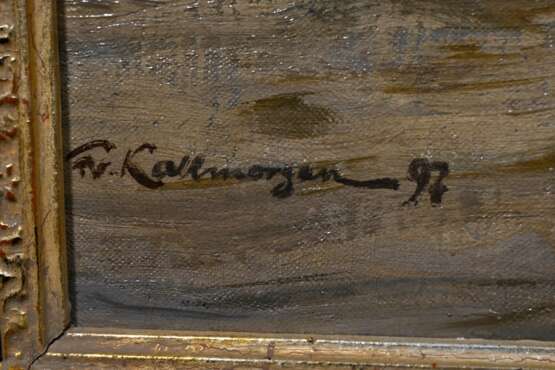 Fr. Kallmorgen 97